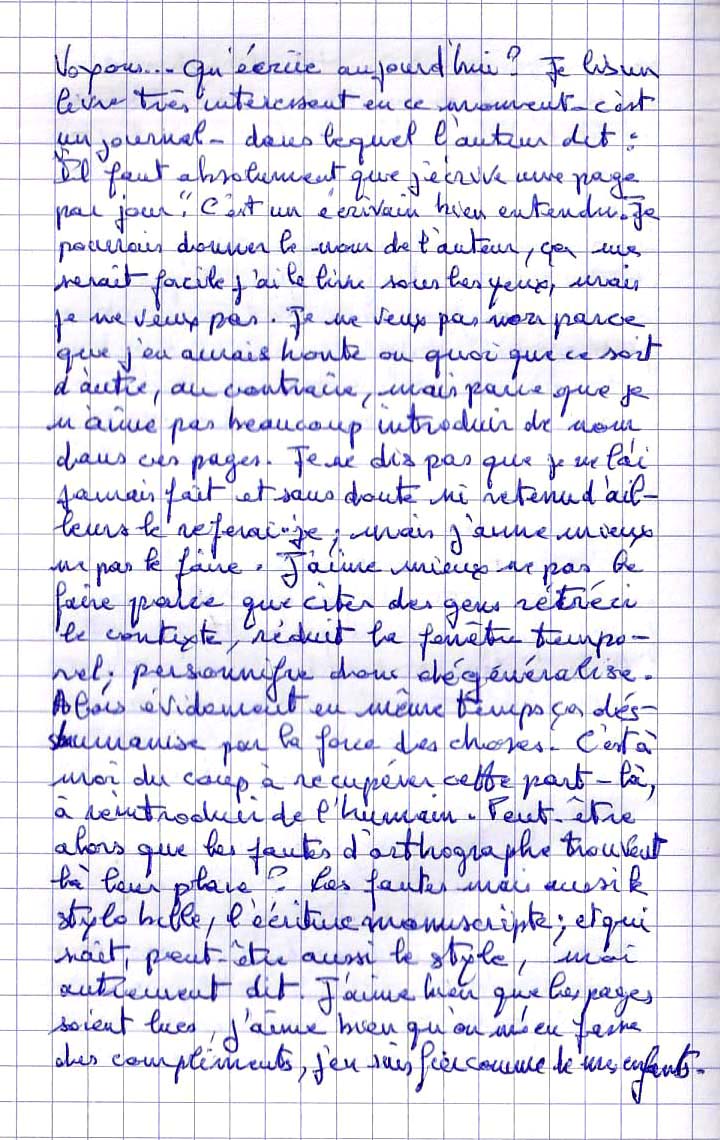 Voyons... Qu'écrire aujourd'hui? Je lis un
livre très interessant en ce moment - c'est
un journal - dans lequel l'auteur dit :
"Il faut absolument que j'écrive une page
par jour". C'est un écrivain bien entendu. Je
pourrais donner le nom de l'auteur, ça me
serait facile j'ai le livre sous les yeux, mais
je ne veux pas. Je ne veux pas non parce
que j'en aurais honte ou quoi que ce soit
d'autre, au contraire, mais parce que je
n'aime pas beaucoup introduire de nom
dans ces pages. Je ne dis pas que je ne l'ai
jamais fait et sans doute ni retenu d'ail-
leurs le referai-je; mais j'aime mieux
ne pas le faire. J'aime mieux ne pas le
faire parce que citer des gens rétréci
le contexte, réduit la fenêtre tempo-
rel; personnifie donc dégénéralise.
Alors évidement en même temps ça dés-
humanise par la force des choses. C'est à
moi du coup à récupérer cette part-là,
à réintroduire de l'humain. Peut-être
alors que les fautes d'orthographe trouvent
là leur place? Les fautes mais aussi le
stylo bille, l'écriture manuscripte; et qui
sait, peut-être aussi le style, moi
autrement dit. J'aime bien que les pages
soient lues, j'aime bien qu'on m'en fasse
des compliments, j'en suis fier comme de mes enfants.